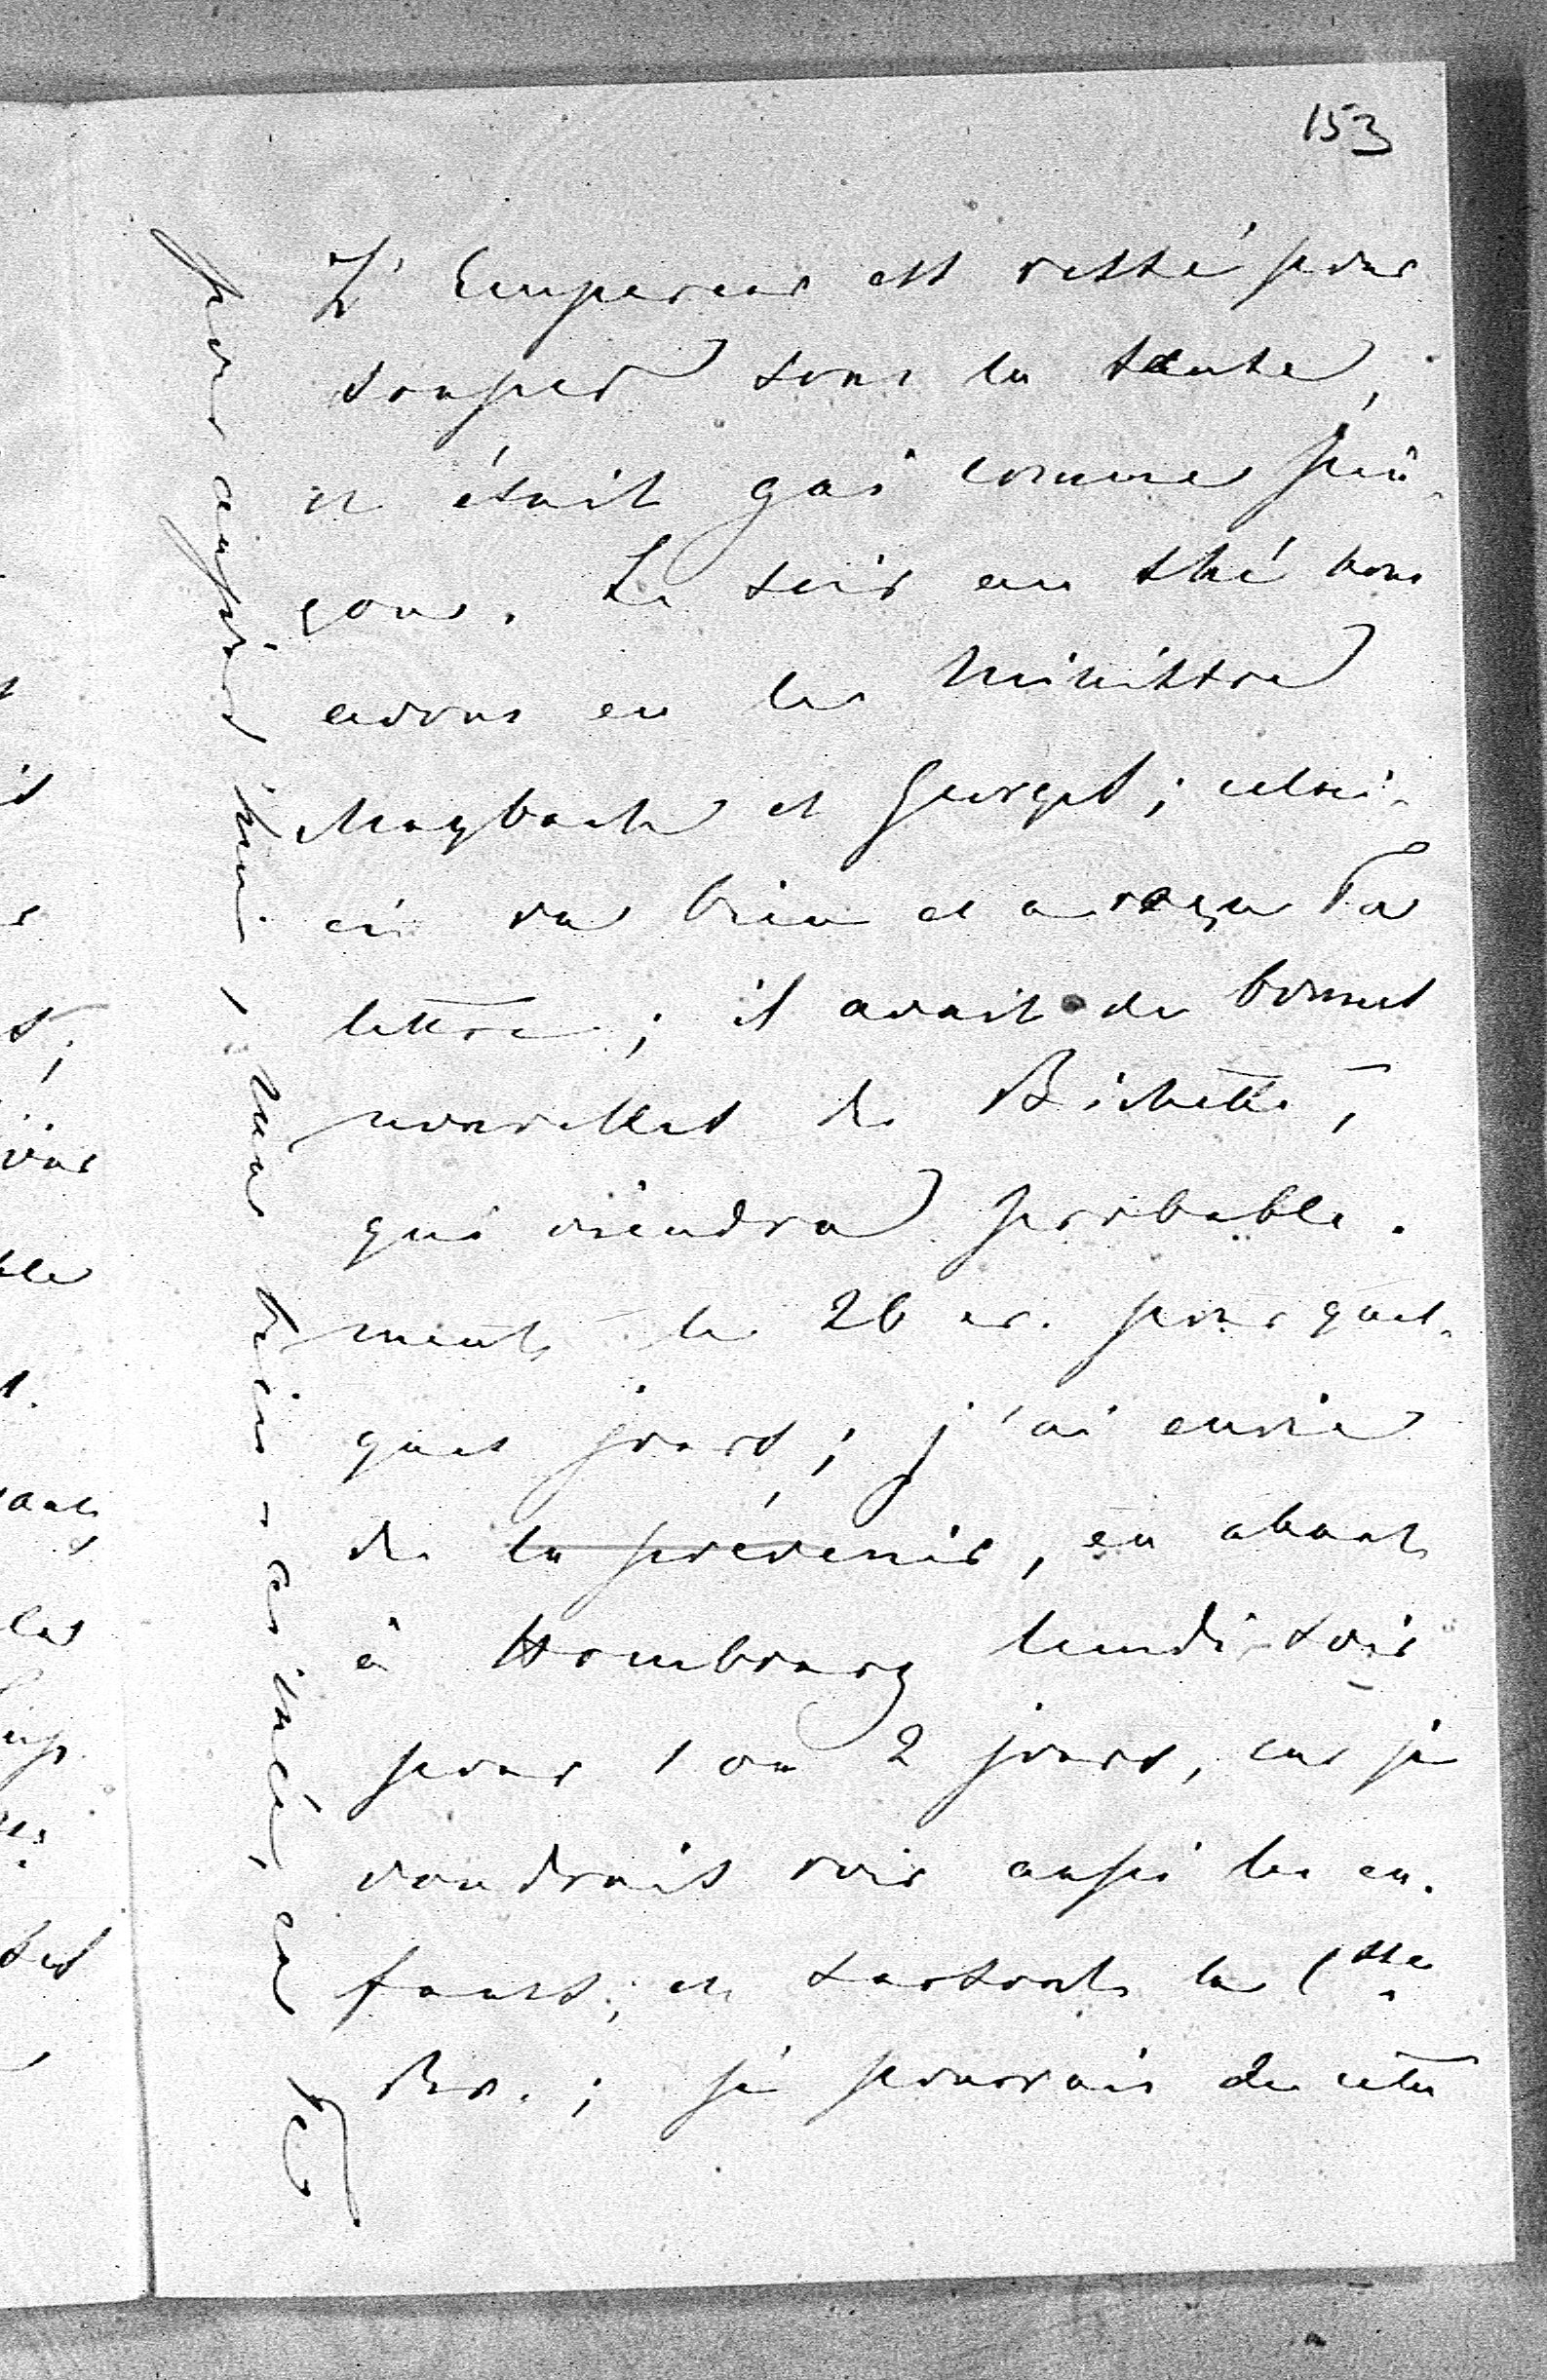 153
L'Empereur est resté pour
souper sous la tente,
et était gai comme pin-
çon. Le soir au thé nous
avons eu le Ministre
Maybach et Georges; celui-
ci va bien et a reçu Ta
lettre; il avait de bonnes
nouvelles de Bichette,
qui viendra probable-
ment le 26 cr. pour quel-
ques jours; j'ai envie
de la prévenir, en allant
à Hombourg lundi soir
pour 1 ou 2 jours, car je
voudrais voir aussi les en-
fants, et surtout la Csse
Br.; je pourrais de cette